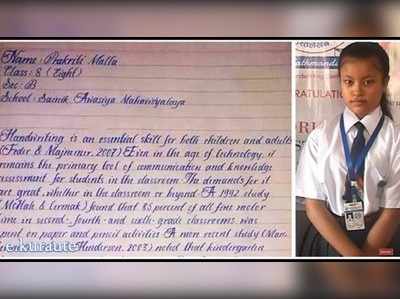 Name : Prakriti Malla
Class : 8 (Eight)
Sec : B
School : Sainik Awasiya Mahavidyalaya
Handwriting is an essential skill for both children and adults
(Feder & Majnemer, 2007) Even in the age of technology, it
remains the primary tool of communication and knowledge
assessment for students in the classroom The demands for it
are great, whether in the classroom or beyond A 1992 study
(McHale & Cermak) found that 85 percent of all fine motor
time in second-, fourth- and sixth-grade classrooms was
spent on paper and pencil activities A more recent study (Mar-
Henderson, 2003) noted that kindergarten
e.kuraute
athmand
RATULATI